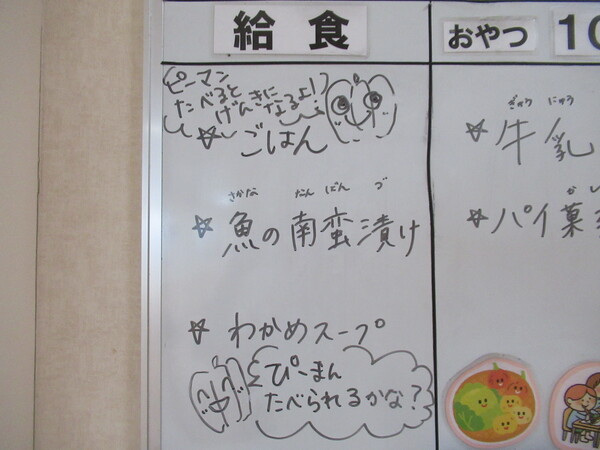 給食
ピーマン
たべると
げんきに
なるよ!
☆ ごはん
さかな なんばんづ
☆ 魚の南蛮漬け
☆ わかめスープ
ぴーまん
たべられるかな?
おやつ 10
ぎゅうにゅう
☆ 牛乳
か
☆ パイ菓